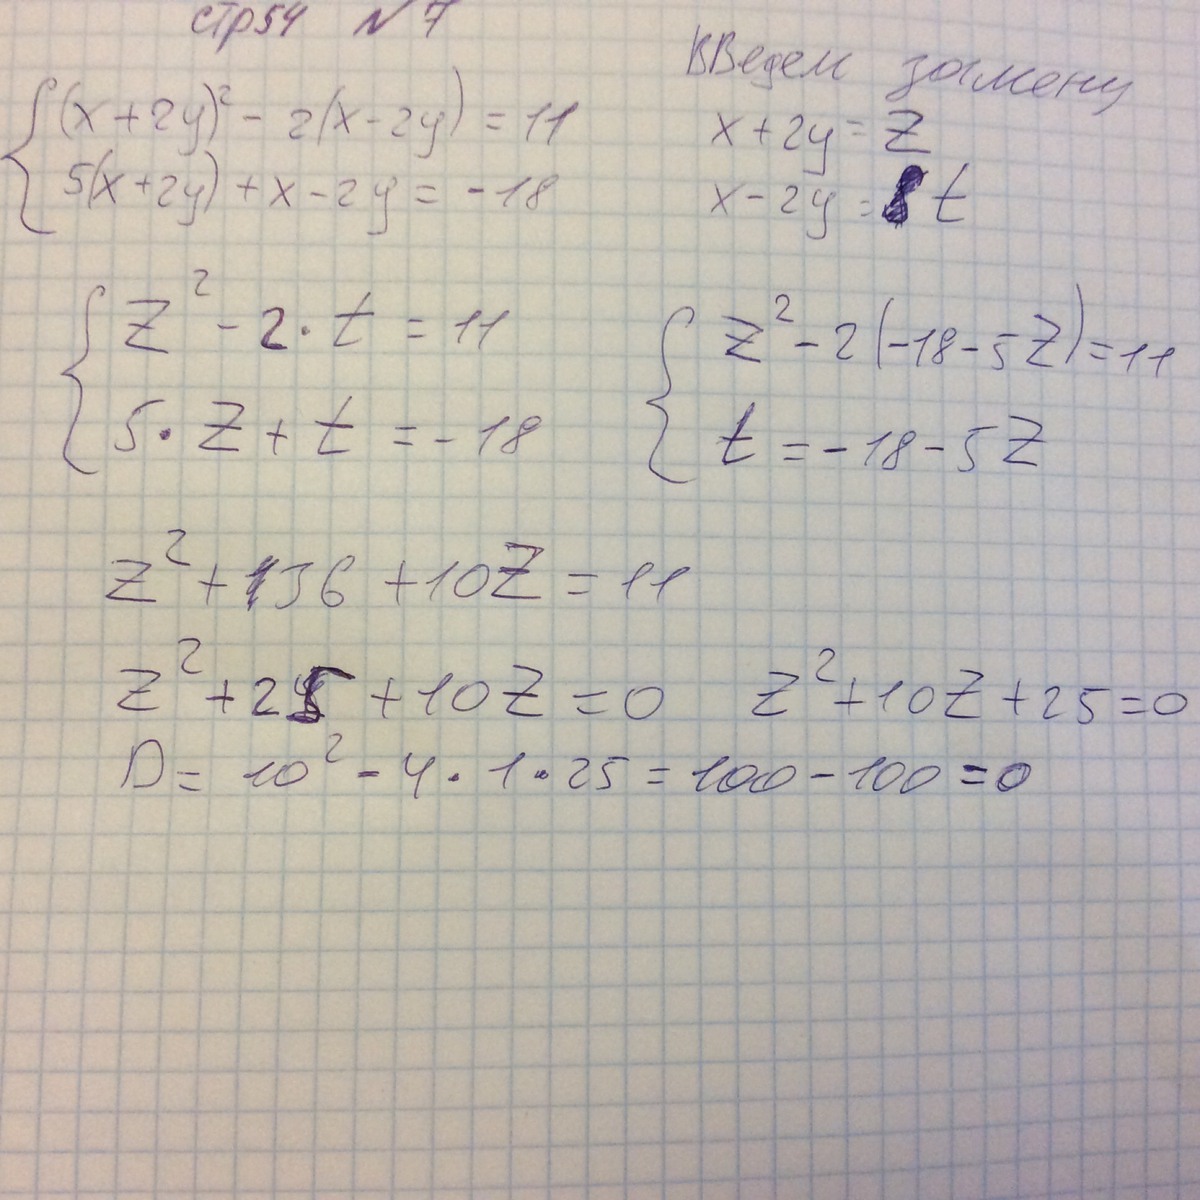 стр54 № 7
(x+2y)² - 2(x-2y) = 11
5(x+2y) + x-2y = -18
Введем замену
x+2y = z
x-2y = t
z² - 2·t = 11
5·z + t = -18
z² - 2(-18-5z) = 11
t = -18-5z
z² + 36 + 10z = 11
z² + 25 + 10z = 0
z² + 10z + 25 = 0
D = 10² - 4·1·25 = 100 - 100 = 0